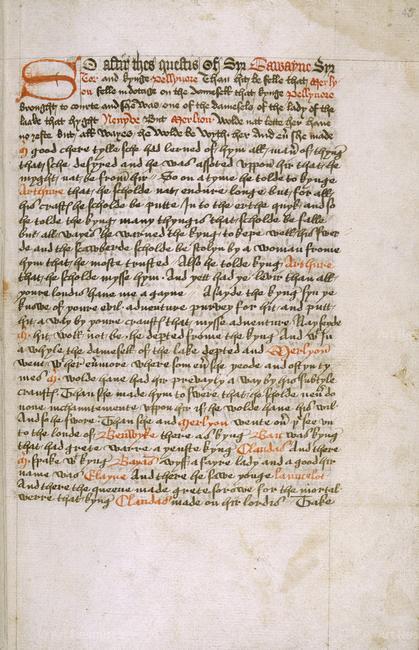 45
So aftir thes questis of Syr Gawayne Syr
Tor and kynge Pellynore Than hit be felle that Merly
on felle in dotage on the damesell that kynge Pellynore
brought to courte and she was one of the damesels of the lady of the
laake that hyght Nenyve But Merlion wolde nat lette her have
no reste but all wayes he wolde be wyth her And eu she made
M good chere tylle sche had lerned of hym all man of thyng
that sche desyred and he was assoted uppon hir that he
myght nat be from hir So on a tyme he tolde to kynge
Arthure that he scholde nat endure longe but for all
his craftes he scholde be putte in to the erthe quyk and so
he tolde the kyng many thyngis that scholde be falle
but all wayes he warned the kyng to kepe well his swer
de and the scawberde scholde be stolyn by a woman frome
hym that he moste trusted Also he tolde kyng Arthure
that he scholde mysse hym And yett had ye levir than all
youre londis have me a gayne A sayde the kyng syn ye
knowe of youre evil adventure purvey for hit and putt
hit a way by youre crauftes that mysse adventure Nay seyde
M hit woll not be he depted frome the kyng And wt in
a whyle the damesell of the lake depted and Merlyon
went wt her evmore where som ev she yeode and oftyn ty
mes M wolde have had hir prevayly a way by his subtyle
craufts Than she made hym to swere that he sholde nev do
none inchauntemente uppon hir if he wolde have his wil
And so he swore Than she and Merlyon wente ovir the see un
to the londe of Benwyke there as kyng Ban was kyng
that had grete warre a yenste kyng Claudas And there
M spake wt kyng Bayans wyff a fayre lady and a good hir
name was Elayne And there he sawe yonge Launcelot
And there the queene made grete sorowe for the mortal
werre that kyng Claudas made on hir lordis Take